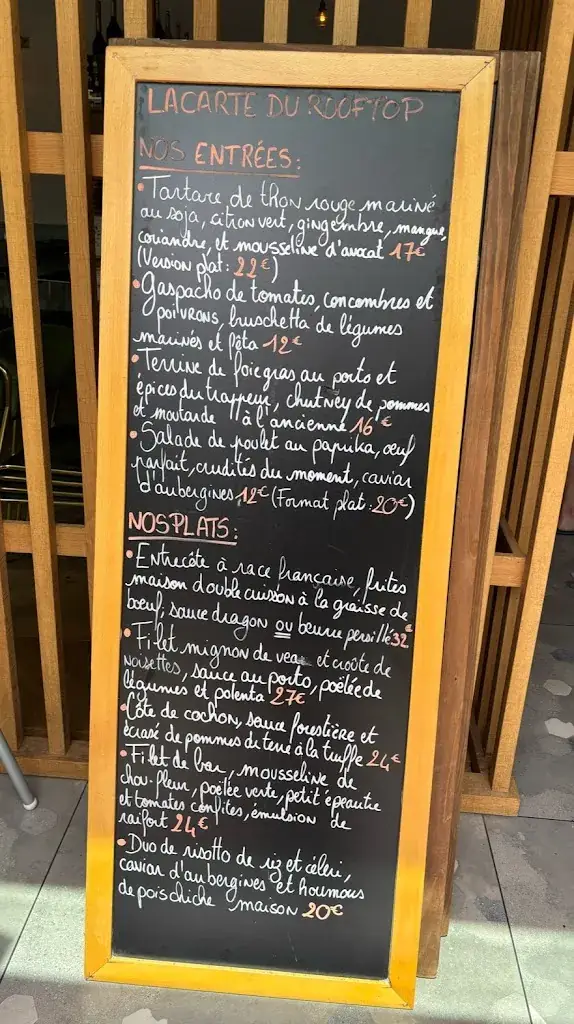 LA CARTE DU ROOFTOP
NOS ENTRÉES:
• Tartare de thon rouge mariné
au soja, citron vert, gingembre, mangue,
coriandre, et mousseline d'avocat 17€
(Version plat: 22€)
• Gaspacho de tomates, concombres et
poivrons, bruschetta de légumes
marinés et fêta 12€
• Terrine de foie gras au porto et
épices du trappeur, chutney de pommes
et moutarde à l'ancienne 16€
• Salade de poulet au paprika, oeuf
parfait, crudités du moment, caviar
d'aubergines 12€ (Format plat: 20€)
NOS PLATS:
• Entrecôte à race française, frites
maison double cuisson à la graisse de
boeuf, sauce dragon ou beurre persillé 32€
• Filet mignon de veau et croûte de
noisettes, sauce au porto, poêlée de
légumes et polenta 27€
• Côte de cochon, sauce forestière et
écrasé de pommes du terre à la truffe 24€
• Filet de bar, mousseline de
chou-fleur, poêlée verte, petit épeautre
et tomates confites, émulsion de
raifort 24€
• Duo de risotto de riz et céleri,
caviar d'aubergines et houmous
de pois chiche maison 20€